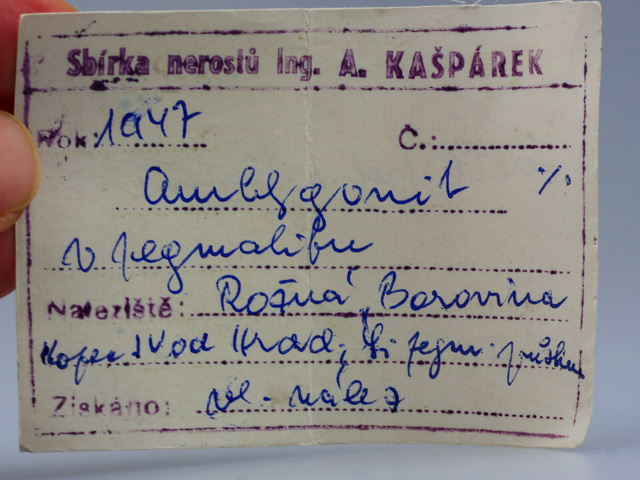 Sbírka nerostů Ing. A. KAŠPÁREK
Rok: 1947 Č.:
Amblygonit %
v pegmatitu
Naleziště: Rožná, Borovina
Kopec SV od Hrad. Li pegm.
Získáno: vl. nález